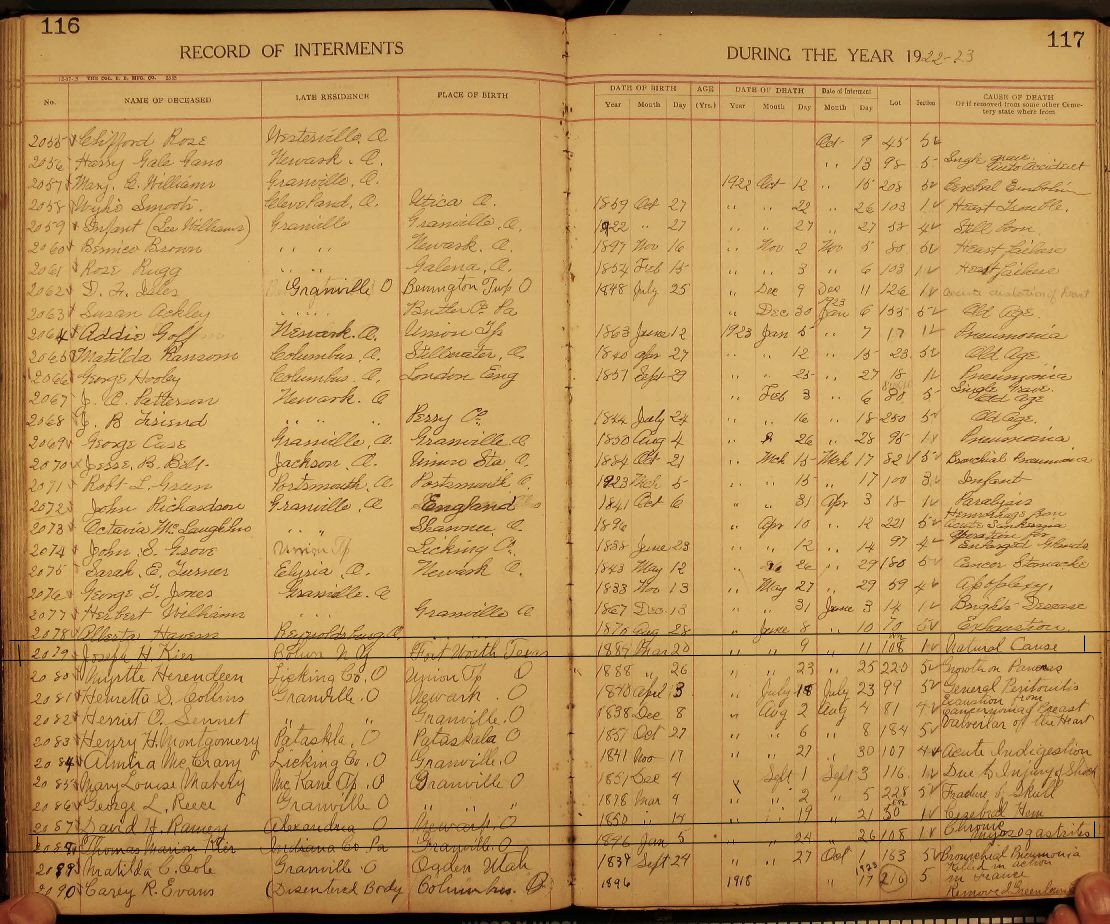 116
RECORD OF INTERMENTS
DURING THE YEAR 1922-23
117
No. NAME OF DECEASED LATE RESIDENCE PLACE OF BIRTH DATE OF BIRTH Year Month Day AGE (Yrs.) DATE OF DEATH Year Month Day Date of Interment Month Day Lot Section CAUSE OF DEATH Or if removed from some other Cemetery state where from
2055 Clifford Rose Westerville, O. Oct 9 45 5
2056 Harry Gale Gano Newark, O. " 13 98 5 Single grave Auto Accident
2057 Mary C. Williams Granville, O. 1922 Oct 12 " 15 208 5 Cerebral Embolism
2058 Smoots Cleveland, O. Utica O. 1859 Oct 27 " " 22 " 26 103 1 Heart Trouble.
2059 Infant (Lee Williams) Granville Granville, O. 1922 " 27 " " 27 " 27 4 Still born
2060 Bernice Brown " " Newark, O. 1897 Nov 16 " Nov 2 Nov 5 80 5 Heart failure
2061 Rose Rugg " " Galena, O. 1854 Feb 15 " " 3 " 6 103 1 Heart failure
2062 D. Granville O Bennington Twp O 1848 July 25 " Dec 9 Dec 11 126 1 Acute dilatation of heart
2063 Susan Ackley " " Butler Co Pa " Dec 30 1923 Jan 6 155 5 Old Age.
2064 Addie Goff Newark, O. Union Tp 1863 June 12 1923 Jan 5 " 7 17 1 Pneumonia
2065 Matilda Ransom Columbus, O. Stillwater, O. 1840 Apr 27 " " 12 " 15 23 5 Old Age
2066 George Hooley Columbus, O. London Eng 1857 Sept 27 " " 25 " 27 18 1 Pneumonia
2067 J. C. Patterson Newark, O. " Feb 3 " 6 80 5 Single Grave Old Age
2068 J. B Friend " " " Perry Co. 1844 July 24 " " 16 " 18 250 5 Old Age.
2069 George Case Granville, O. Granville O 1850 Aug 4 " " 26 " 28 95 1 Pneumonia
2070 Jesse B. Belt Jackson, O. Union Sta. O. 1884 Oct 21 " Mch 15 Mch 17 82 5 Bronchial Pneumonia
2071 Robt L. Green Portsmouth, O. Portsmouth O. 1923 Mch 5 " " 15 " 17 100 3 Infant
2072 John Richardson Granville, O. England 1841 Oct 6 " " 31 Apr 3 18 1 Paralysis
2073 Octavia McLaughlin " " Shawnee O. 1896 " Apr 10 " 12 221 5 Hemorrhage from Acute Leukemia
2074 John S. Grove Union Tp Licking Co. 1858 June 23 " " 12 " 14 97 4 Operation for Enlarged Glands
2075 Sarah E. Turner Elyria, O. Newark O. 1843 May 12 " " 26 " 29 180 5 Cancer Stomache
2076 George T. Jones Granville, O 1833 Nov 13 " May 27 " 29 59 4 Apoplexy.
2077 Herbert Williams " " Granville O 1867 Dec 13 " " 31 June 3 14 1 Brights Disease
2078 Alberta Havens Reynoldsburg O 1870 Aug 28 " June 8 " 10 70 5 Exhaustion
2079 Joseph H Kier N.Y. Fort Worth Texas 1887 Mar 20 " " 9 " 11 108 1 Natural Cause
2080 Myrtle Herendeen Licking Co, O Union Tp O 1888 " 26 " " 23 " 25 220 5 Growth on Pancreas
2081 Henrietta S. Collins Granville, O Newark, O 1870 April 3 " July 18 July 23 99 5 General Peritonitis
2082 Harriet O. Sennet " " Granville, O 1838 Dec 8 " Aug 2 Aug 4 81 4 Exaustion from cancer breast
2083 Henry H. Montgomery Pataskla, O Pataskala O 1851 Oct 27 " " 6 " 8 184 5 Valvular of the Heart
2084 Almira McCrary Licking Co., O Granville. O 1841 Nov 17 " " 27 " 30 107 4 Acute Indigestion
2085 Mary Louise Mabery McKane Tp. O Granville O 1851 Dec 4 " Sept 1 Sept 3 116 1 Due to Injury & Shock
2086 George L. Reece Granville O " " " 1876 Mar 9 " " 2 " 5 228 5 Fracture of Skull
2087 David H. Ramey Alexandria O Newark, O 1850 " 14 " " 19 " 21 30 1 Cerebral Hem
2088 Thomas Marion Kier Indiana Co Pa Granville, O 1896 Jan 5 " " 24 " 26 108 1 Chronic
2089 Matilda C. Cole Granville. O Ogden Utah 1839 Sept 24 " " 27 Oct 1 163 5 Bronchial Pneumonia
2090 Carey R. Evans (Disentered Body Columbus. O 1896 1918 " 1923 17 216 5 Killed in action in France Removed Greenlawn